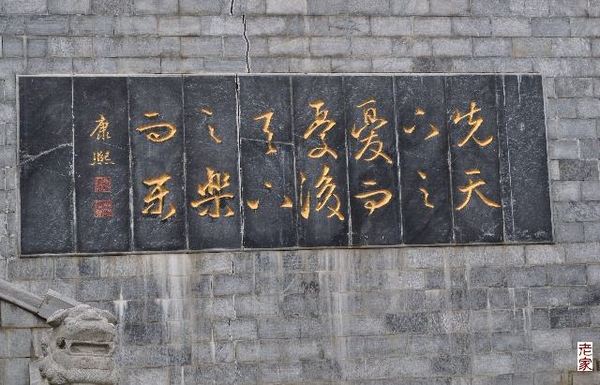 先天
下之
憂而
憂後
天下
之樂
而乐
康熙
老家